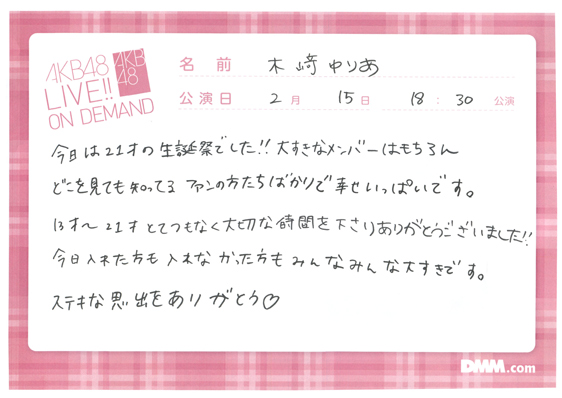 AKB48
LIVE!!
ON DEMAND
AKB
48
名前 木﨑ゆりあ
公演日 2月 15日 18:30 公演
今日は21才の生誕祭でした!! 大すきなメンバーはもちろん
どこを見ても知ってるファンの方たちばかりで幸せいっぱいです。
13才〜21才とてつもなく大切な時間を下さりありがとうございました!!
今日入れた方も入れなかった方もみんなみんな大すきです。
ステキな思い出をありがとう♡
DMM.com